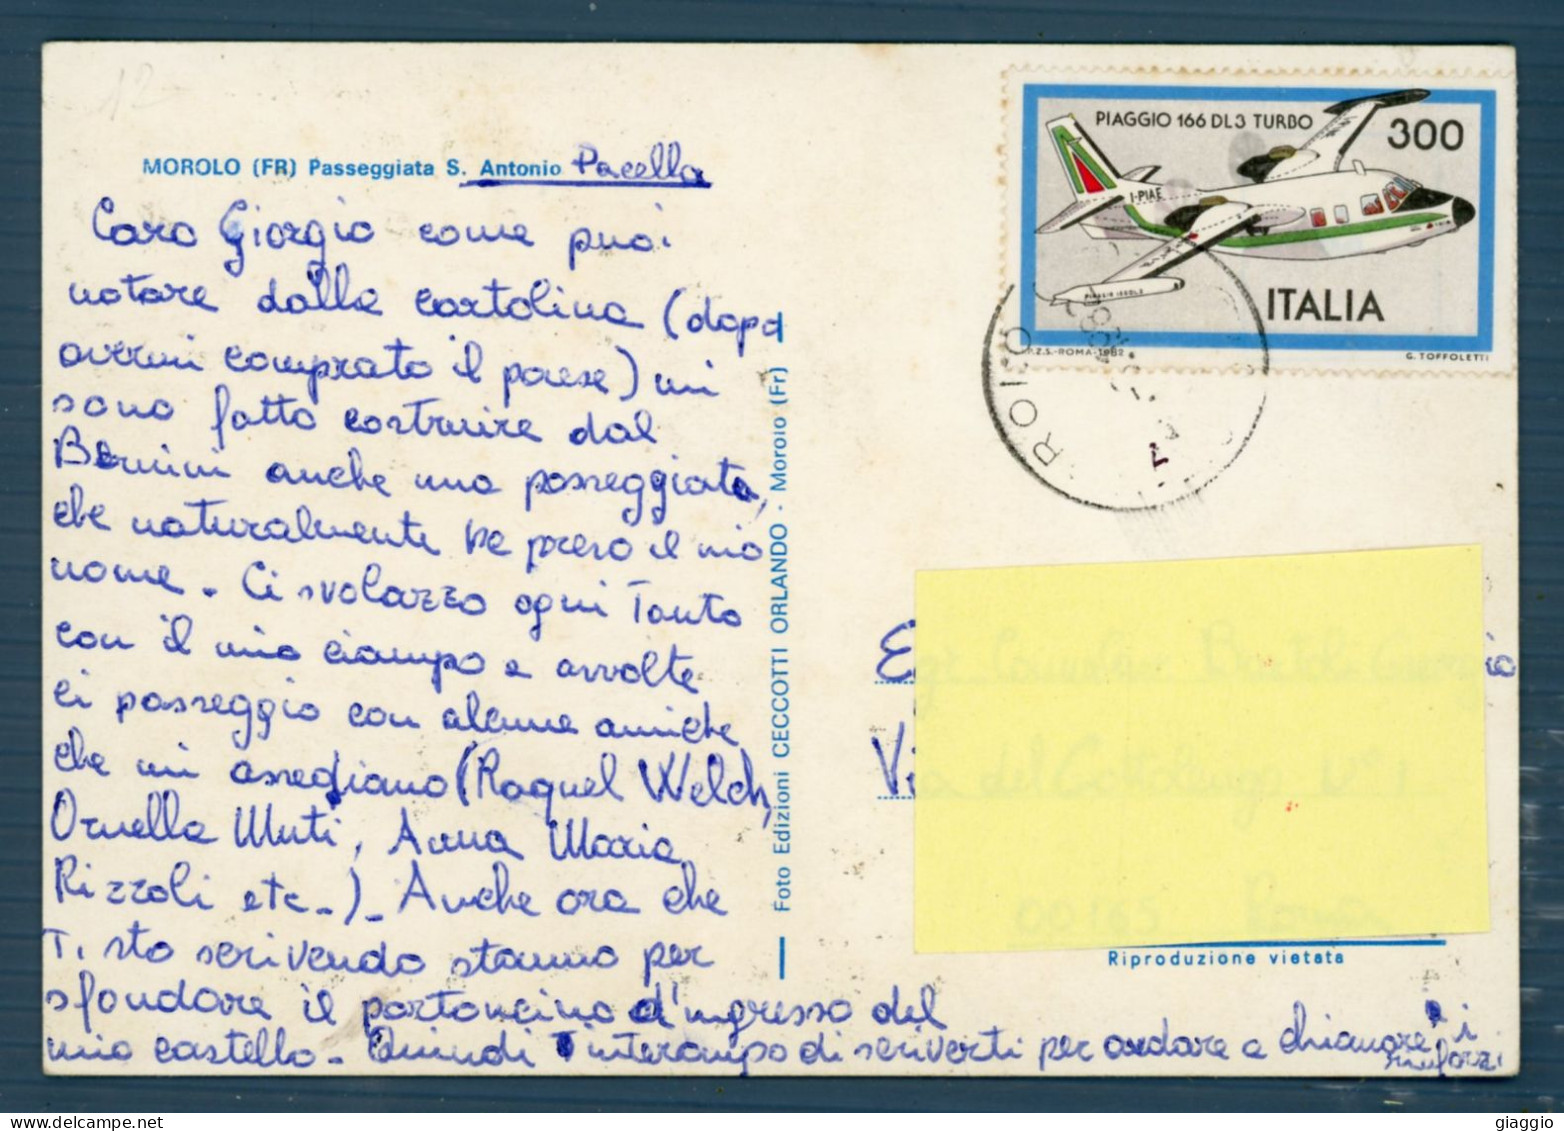 12
MOROLO (FR) Passeggiata S. Antonio Pacella
Caro Giorgio come puoi
notare dalla cartolina (dopo
avermi comprato il paese) mi
sono fatto costruire dal
Bernini anche una passeggiata,
che naturalmente ha preso il mio
nome - Ci svolazzo ogni Tanto
con il mio ciampo e avvolte
ci passeggio con alcune amiche
che mi assediano (Raquel Welch,
Ornella Muti, Anna Maria
Rizzoli etc-)- Anche ora che
Ti sto scrivendo stanno per
sfondare il portoncino d'ingresso del
mio castello- Quindi interompo di scriverti per andare a chiamare i
rinforzi
Foto Edizioni CECCOTTI ORLANDO - Morolo (Fr)
PIAGGIO 166 DL3 TURBO
300
I-PIAE
PIAGGIO 166DL3
ITALIA
I.P.Z.S.-ROMA-1982
G. TOFFOLETTI
Via del Cottolengo N° 1
00165 Roma
Riproduzione vietata
giaggio